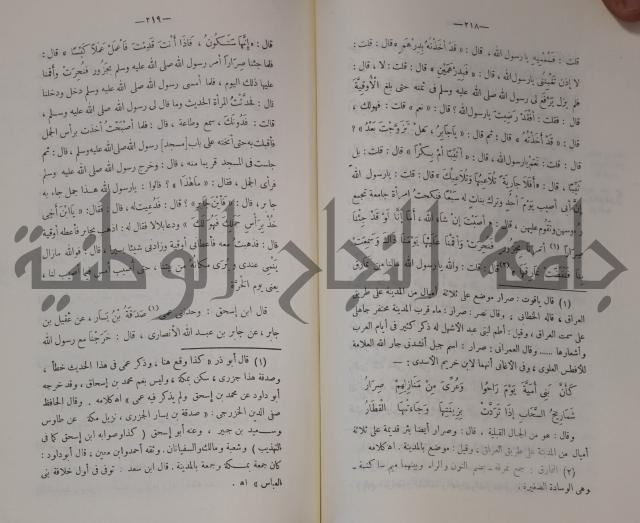 — ٢١٨ —
قلت : فتغبننى يارسول الله ، قال : « قد أخذته بدرهم » قال : قلت :
لا إذن تغبننى يارسول الله ، قال : « فبدرهمين » قال : قلت : لا ، قال :
فلم يزل يرفع لى رسول الله صلى الله عليه وسلم فى ثمنه حتى بلغ الأوقية
قال : فقلت : أفقد رضيت يارسول الله ؟ قال : « نعم » قلت : فهو لك ،
قال : « قد أخذته » قال : ثم قال : « ياجابر ، هل تزوجت بعد » ؟
قال : قلت : نعم يارسول الله ، قال : « أثيبا أم بكرا » ؟ قال : قلت : بل
ثيبا ، قال : « أفلا جارية تلاعبها وتلاعبك » قال : قلت : يارسول الله
إن أبى أصيب يوم أحد وترك بنات له سبعا فنكحت امرأة جامعة تجمع
رءوسهن وتقوم عليهن ، قال : « أصبت إن شاء الله ، أما إنا لو قد جئنا
صرارا (١) أمرنا بجزور فنحرت وأقمنا عليها يومنا ذاك وسمعت
بنا فنفضت نمارقها (٢) » قال : قلت : والله يارسول الله مالنا من نمارق
(١) قال ياقوت : صرار موضع على ثلاثة أميال من المدينة على طريق
العراق ، قاله الخطابى ، وقال نصر : صرار : ماء قرب المدينة محتفر جاهلى
على سمت العراق ، وقيل : أطم لبنى عبد الأشهل له ذكر كثير فى أيام العرب
وأشعارها ..... وقال العمرانى : صرار : اسم جبل أنشدنى جار الله العلامة
للأفطس العلوى ، وفى الأغانى أنهما لابن خريم الأسدى : —
كأن بنى أمية يوم راحوا وعرى من منازلهم صرار
شماريخ السحاب إذا تردت بزينتها وجادتها القطار
وقال : هو من الجبال القبلية ، قال : وصرار أيضا بئر قديمة على ثلاثة
أميال من المدينة على طريق العراق ، وقيل : موضع بالمدينة . اه كلامه
(٢) النمارق : جمع نمرقة — بضم النون والراء وبينهما ميم ساكنة —
وهى الوسادة الصغيرة .
— ٢١٩ —
قال : « إنها ستكون ، فاذا أنت قدمت فاعمل عملا كيسا » قال :
فلما جئنا صرارا أمر رسول الله صلى الله عليه وسلم بجزور فنحرت وأقمنا
عليها ذلك اليوم ، فلما أمسى رسول الله صلى الله عليه وسلم دخل ودخلنا
قال : فحدثت المرأة الحديث وما قال لى رسول الله صلى الله عليه وسلم ،
قالت : فدونك ، سمع وطاعة ، قال : فلما أصبحت أخذت برأس الجمل
فأقبلت به حتى أنخته على باب [ مسجد ] رسول الله صلى الله عليه وسلم ، قال : ثم
جلست فى المسجد قريبا منه ، قال : وخرج رسول الله صلى الله عليه وسلم
فرأى الجمل ، فقال : « ماهذا » ؟ قالوا : يارسول الله هذا جمل جاء به
جابر ، قال : « فأين جابر » ؟ قال : فدعيت له ، قال : فقال : « يابن أخى
خذ برأس جملك فهو لك » ودعا بلالا فقال له : اذهب بجابر فأعطه أوقية
قال : فذهبت معه فأعطانى أوقية وزادنى شيئا يسيرا ، قال : فوالله مازال
ينمى عندى ويرى مكانه من بيتنا ، حتى أصيب أمس فيما أصيب لنا ،
يعنى يوم الحرة
قال ابن إسحق : وحدثنى عمى (١) صدقة بن يسار ، عن عقيل بن
جابر ، عن جابر بن عبد الله الأنصارى ، قال : خرجنا مع رسول الله
(١) قال أبو ذر « كذا وقع هنا ، وذكر عمى فى هذا الحديث خطأ ،
وصدقة هذا جزرى ، سكن بمكة ، وليس بعم محمد بن إسحاق ، وقد خرجه
أبو داود عن محمد بن إسحق ولم يذكر فيه عمى » اه كلامه . وقال الحافظ
صفى الدين الخزرجى : « صدقة بن يسار الجزرى ، نزيل مكة عن طاوس
وسعيد بن جبير ، وعنه أبو إسحق ( كذا وصوابه ابن إسحق كما فى
التهذيب ) وشعبة ومالك والسفيانان . وثقه أحمد وابن معين ، قال أبو داود :
كان جمعة بمكة وجمعة بالمدينة . قال ابن سعد : توفى فى أول خلافة بنى
العباس » اه .
جامعة النجاح الوطنية